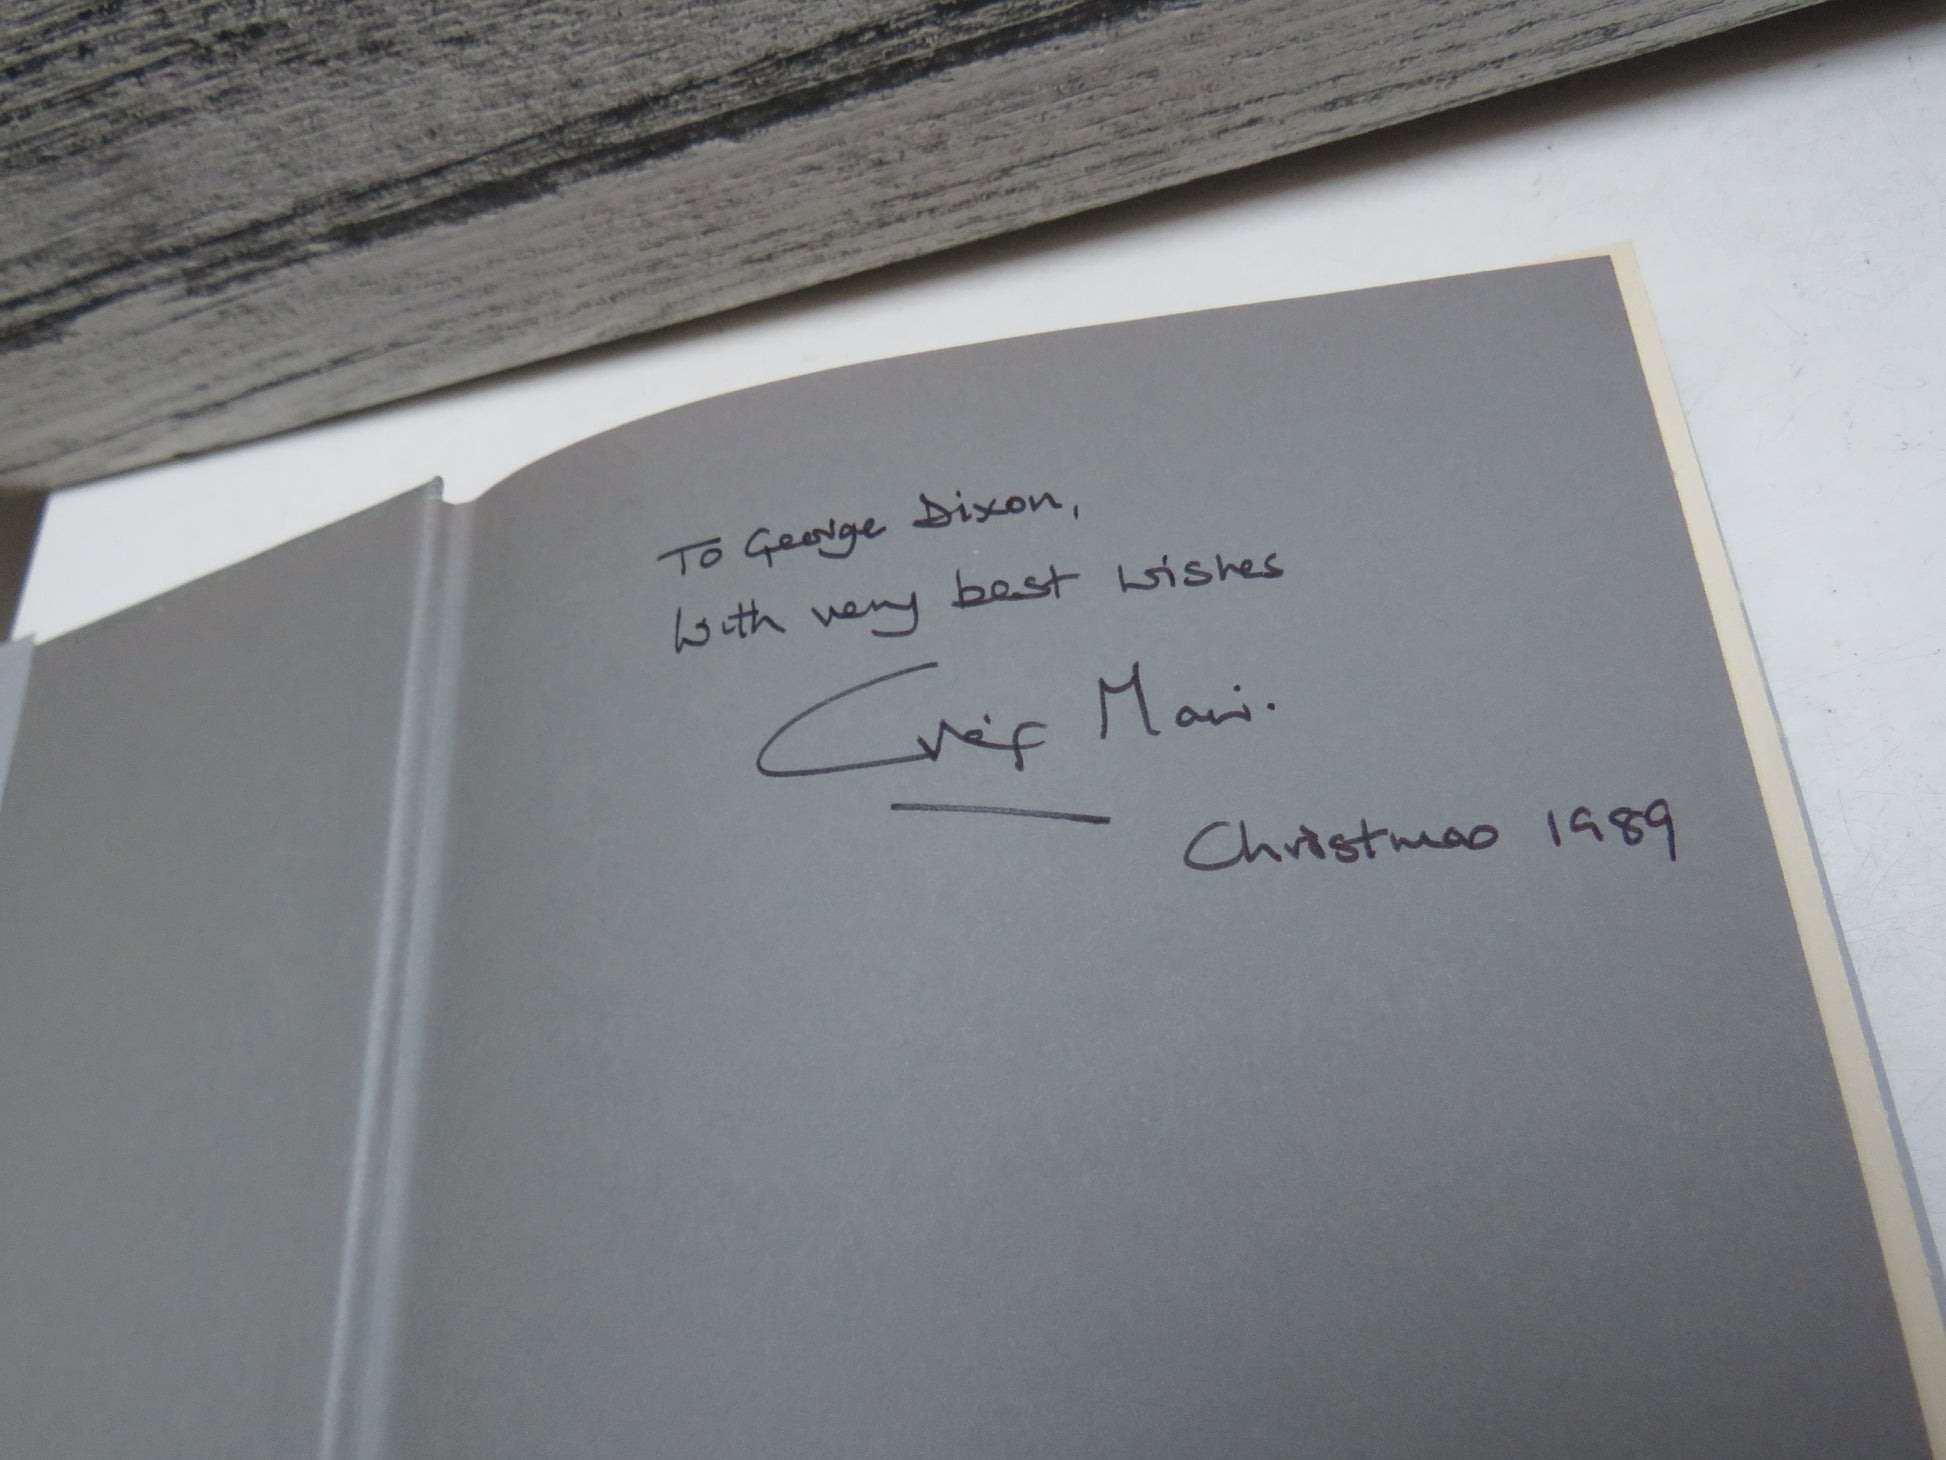 To George Dixon,
with very best wishes
Craig Mair.
Christmas 1989